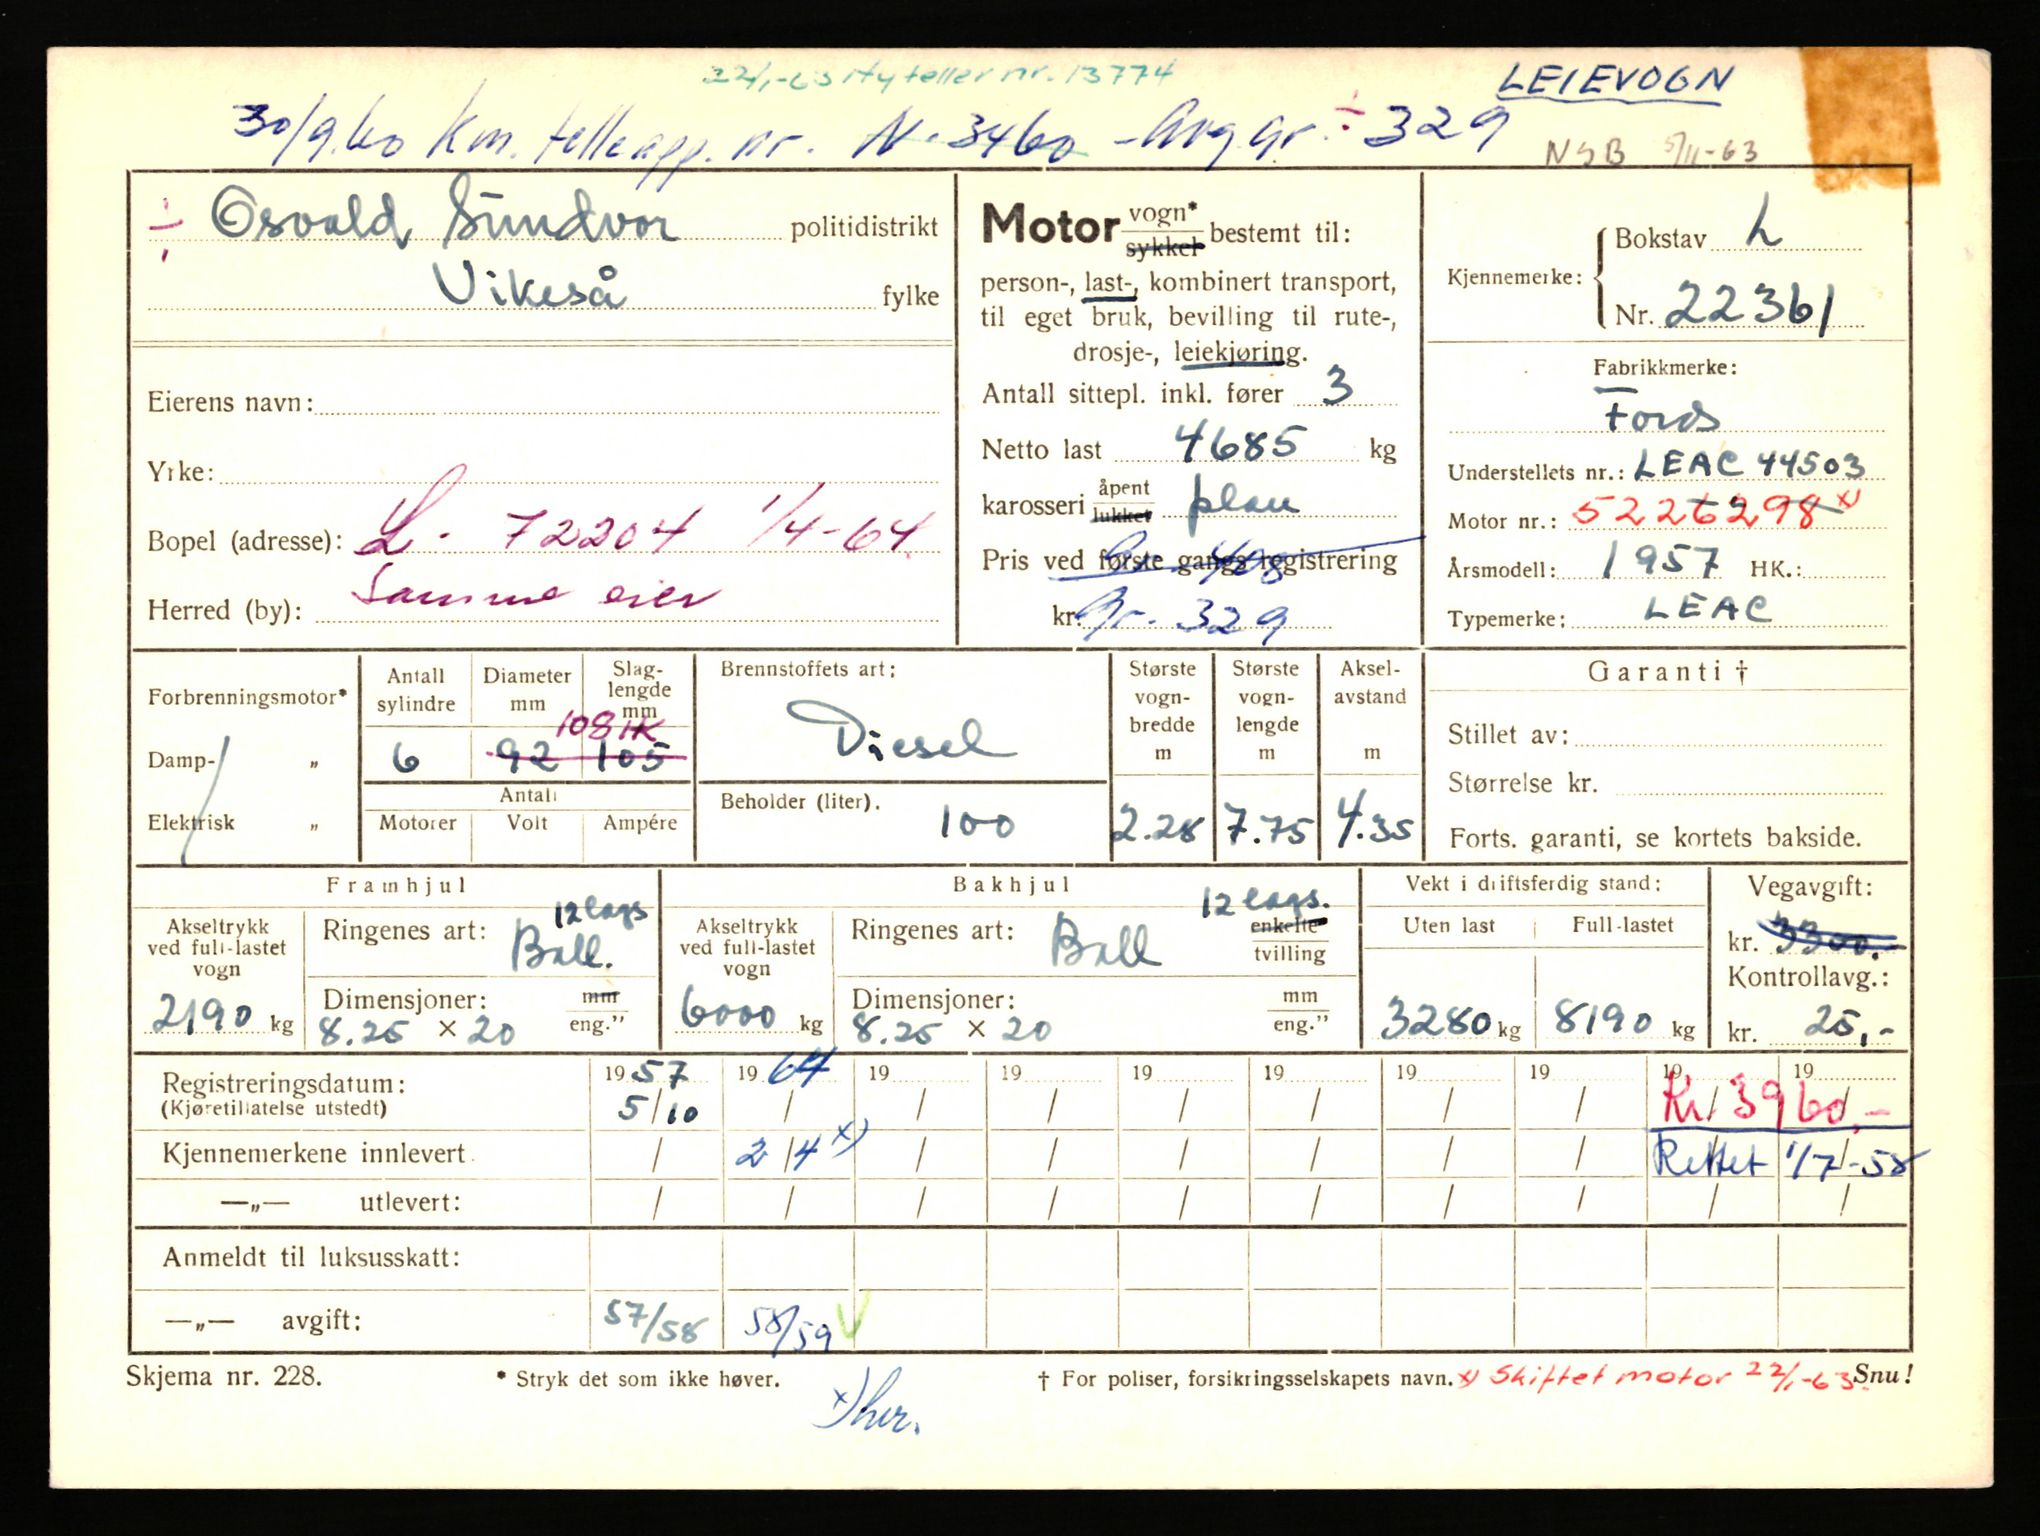 22/1-63 Ny teller nr. 13774
LEIEVOGN
30/9.60 Km. telleapp. nr. N. 3460 - Avg.gr. ÷ 329
NSB 5/11-63
÷ Osvald Sundvor politidistrikt
Vikeså fylke
Eierens navn:
Yrke:
Bopel (adresse): L. 72204 1/4-64
Samme eier
Herred (by):
Motor vogn* sykkel bestemt til:
person-, last-, kombinert transport,
til eget bruk, bevilling til rute-,
drosje-, leiekjøring.
Antall sittepl. inkl. fører 3
Netto last 4685 kg
karosseri åpent lukket plan
Pris ved første gangs registrering
kr. Gr. 329
Kjennemerke: Bokstav L
Nr. 22361
Fabrikkmerke:
Ford
Understellets nr.: LEAC 44503
Motor nr.: 5226298 x)
Årsmodell: 1957 HK.:
Typemerke: LEAC
Forbrenningsmotor*
Damp- „
Elektrisk „
Antall sylindre
Diameter mm
Slaglengde mm
108 HK
6 92 105
Antall
Motorer Volt Ampére
Brennstoffets art:
Diesel
Beholder (liter).
100
Største vognbredde m
2.28
Største vognlengde m
7.75
Akselavstand m
4.35
Garanti †
Stillet av:
Størrelse kr.
Forts. garanti, se kortets bakside.
Framhjul
Akseltrykk ved full-lastet vogn
2190 kg
Ringenes art: 12 lags
Ball.
Dimensjoner: mm eng."
8.25 × 20
Bakhjul
Akseltrykk ved full-lastet vogn
6000 kg
Ringenes art: 12 lags.
Ball enkelte tvilling
Dimensjoner: mm eng."
8.25 × 20
Vekt i driftsferdig stand:
Uten last Full-lastet
3280 kg 8190 kg
Vegavgift:
kr. 3300.
Kontrollavg.:
kr. 25,-
Registreringsdatum: 19 57 19 64 19 19 19 19 19 19 19 19
(Kjøretillatelse utstedt) 5/10 / / / / / / / Kr. 3960,-
Kjennemerkene innlevert / 2/4 x) / / / / / / Rettet 1/7-58
—„— utlevert: / / / / / / / / / /
Anmeldt til luksusskatt:
—„— avgift: 57/58 58/59 V
Skjema nr. 228.
* Stryk det som ikke høver.
† For poliser, forsikringsselskapets navn. x) Skiftet motor 22/1-63. Snu!
x) her.